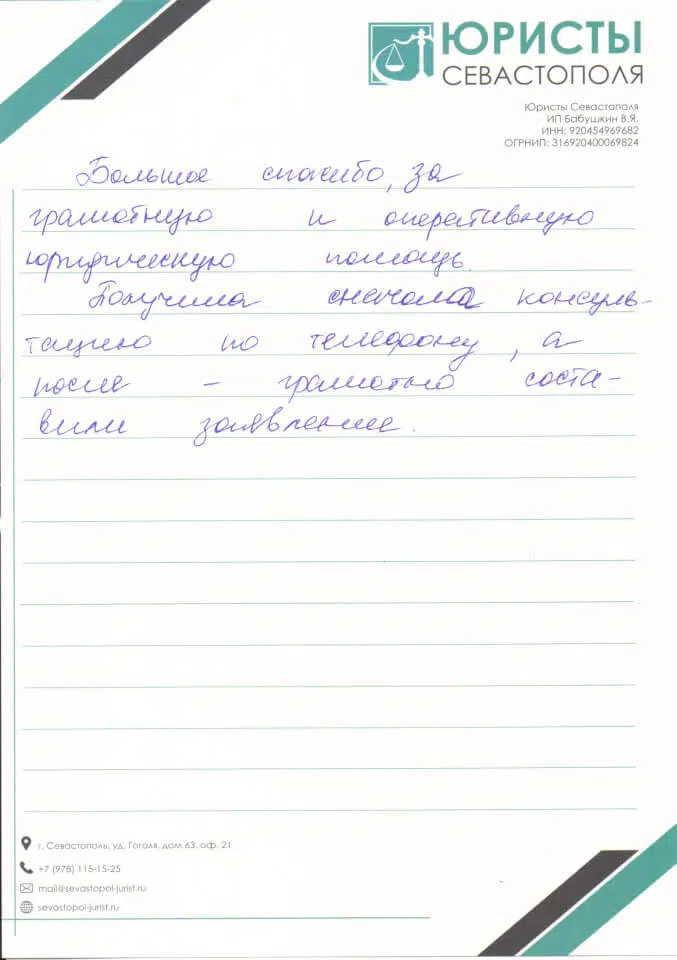 ЮРИСТЫ
СЕВАСТОПОЛЯ
Юристы Севастополя
ИП Бабушкин В.Я.
ИНН: 920454969682
ОГРНИП: 316920400069824
Большое спасибо, за
грамотную и оперативную
юридическую помощь.
Получила сначала консуль-
тацию по телефону, а
после – грамотно соста-
вили заявление.
г. Севастополь, уд. Гоголя, дом 63, оф. 21
+7 (978) 115-15-25
mail@sevastopol-jurist.ru
sevastopol-jurist.ru